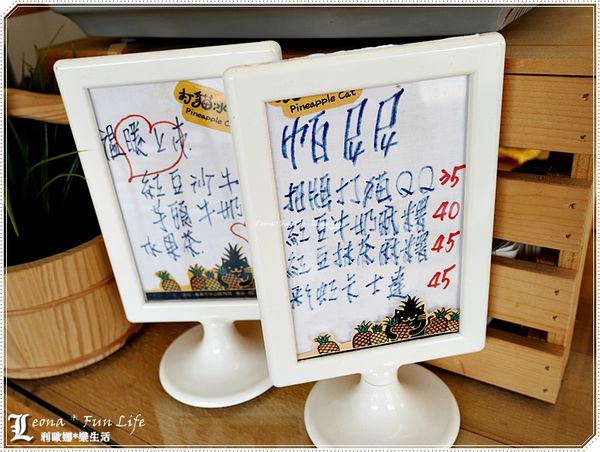 打貓冰
Pineapple C
溫暖上市
紅豆沙牛
芋頭牛奶
水果茶
Pineapple Cat
招牌打貓QQ 35
紅豆牛奶
40
紅豆抹茶
45
彩虹卡士達 45
Leona * Fun Life
利歐娜*樂生活